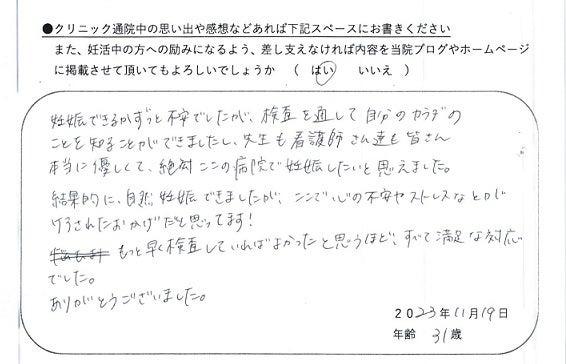 ●クリニック通院中の思い出や感想などあれば下記スペースにお書きください
また、妊活中の方への励みになるよう、差し支えなければ内容を当院ブログやホームページ
に掲載させて頂いてもよろしいでしょうか （ はい いいえ ）
妊娠できるかずっと不安でしたが、検査を通して自分のカラダの
ことを知ることができましたし、先生も看護師さん達も皆さん
本当に優しくて、絶対ここの病院で妊娠したいと思えました。
結果的に、自然妊娠できましたが、ここで心の不安やストレスなどが
けうされたおかげだと思ってます!
もっと早く検査していればよかったと思うほど、すべて満足な対応
でした。
ありがとうございました。
2023年11月19日
年齢 31歳